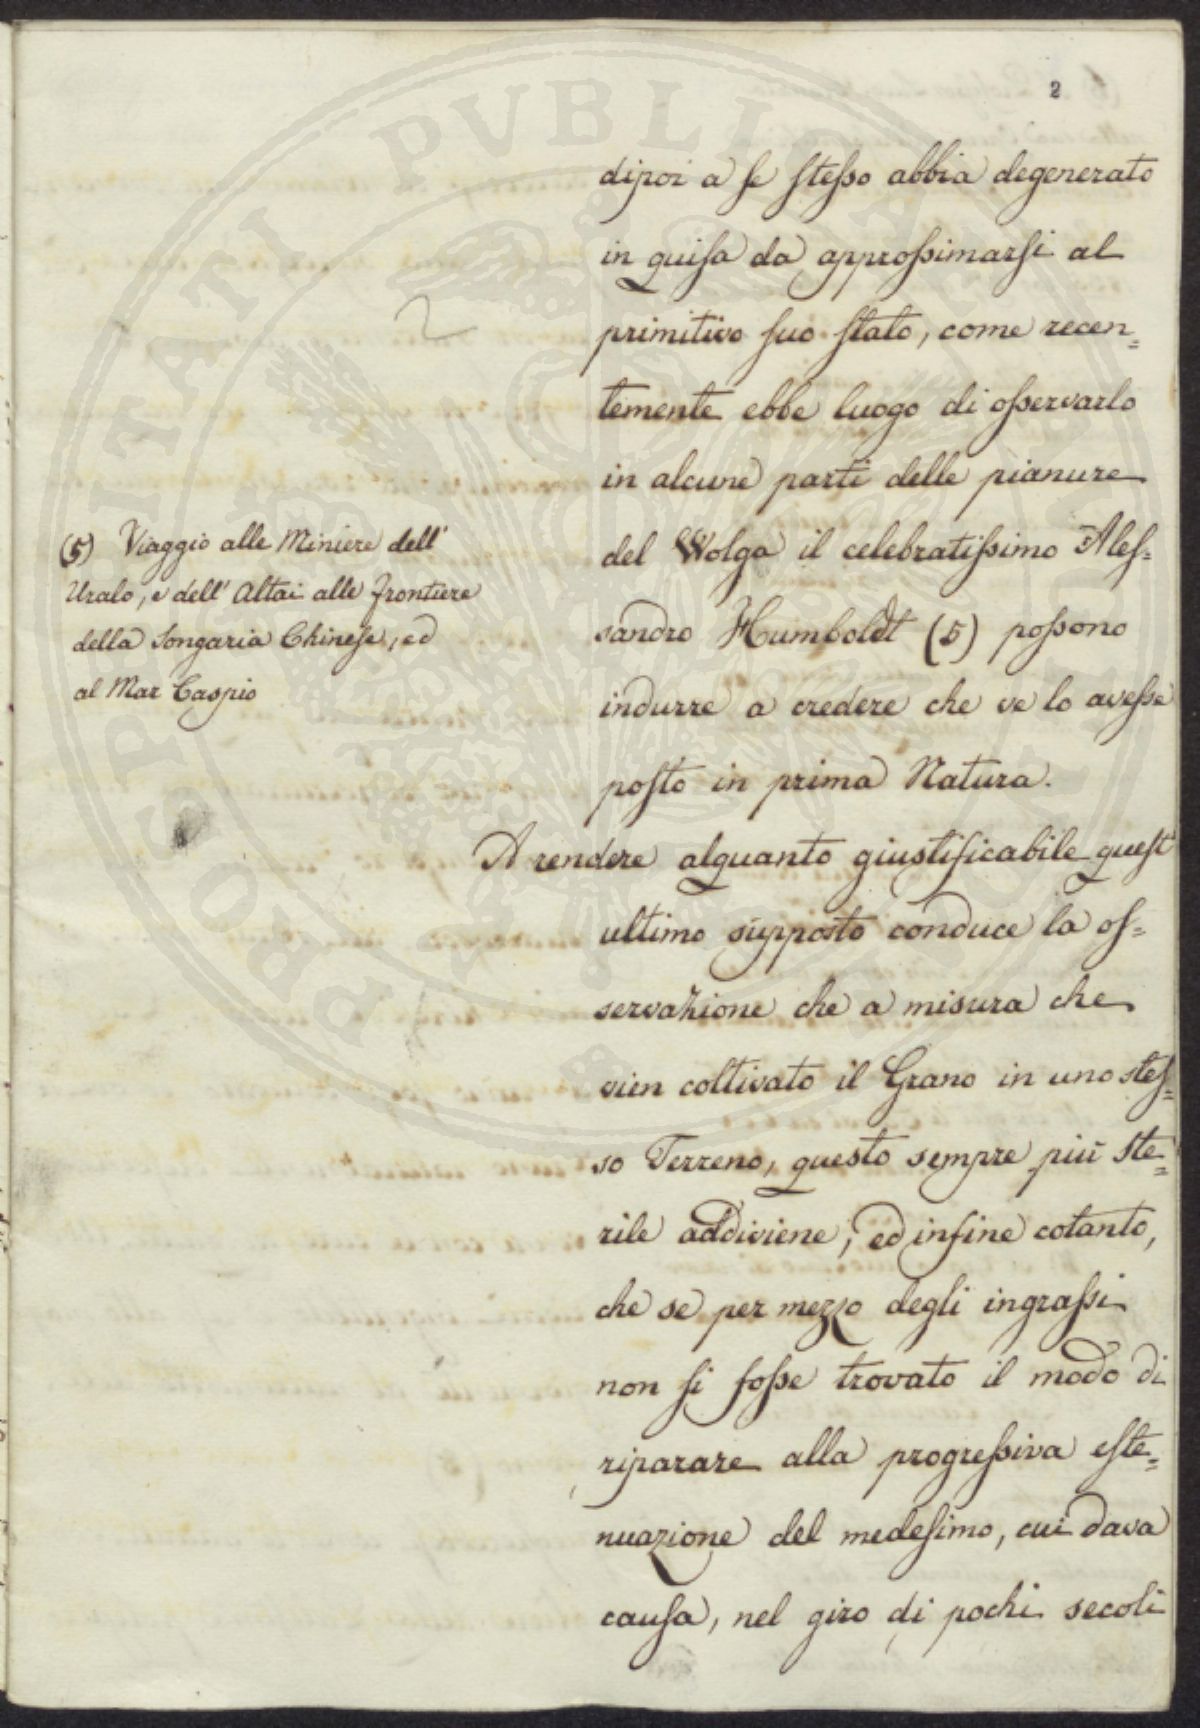 2
dipoi a se stesso abbia degenerato
in guisa da approssimarsi al
primitivo suo stato, come recen=
temente ebbe luogo di osservarlo
in alcune parti delle pianure
del Wolga il celebratissimo Ales=
sandro Humboldt (5) possono
indurre a credere che ve lo avesse
posto in prima Natura.
A rendere alquanto giustificabile quest'
ultimo supposto conduce la os=
servazione che a misura che
vien coltivato il Grano in uno stes=
so Terreno, questo sempre più ste=
rile addiviene, ed infine cotanto,
che se per mezzo degli ingrassi
non si fosse trovato il modo di
riparare alla progressiva este=
nuazione del medesimo, cui dava
causa, nel giro di pochi secoli
2
(5) Viaggio alle Miniere dell'
Uralo, e dell' Altai alle frontiere
della Songaria Chinese, ed
al Mar Caspio
PROSPERITATI PUBLICAE